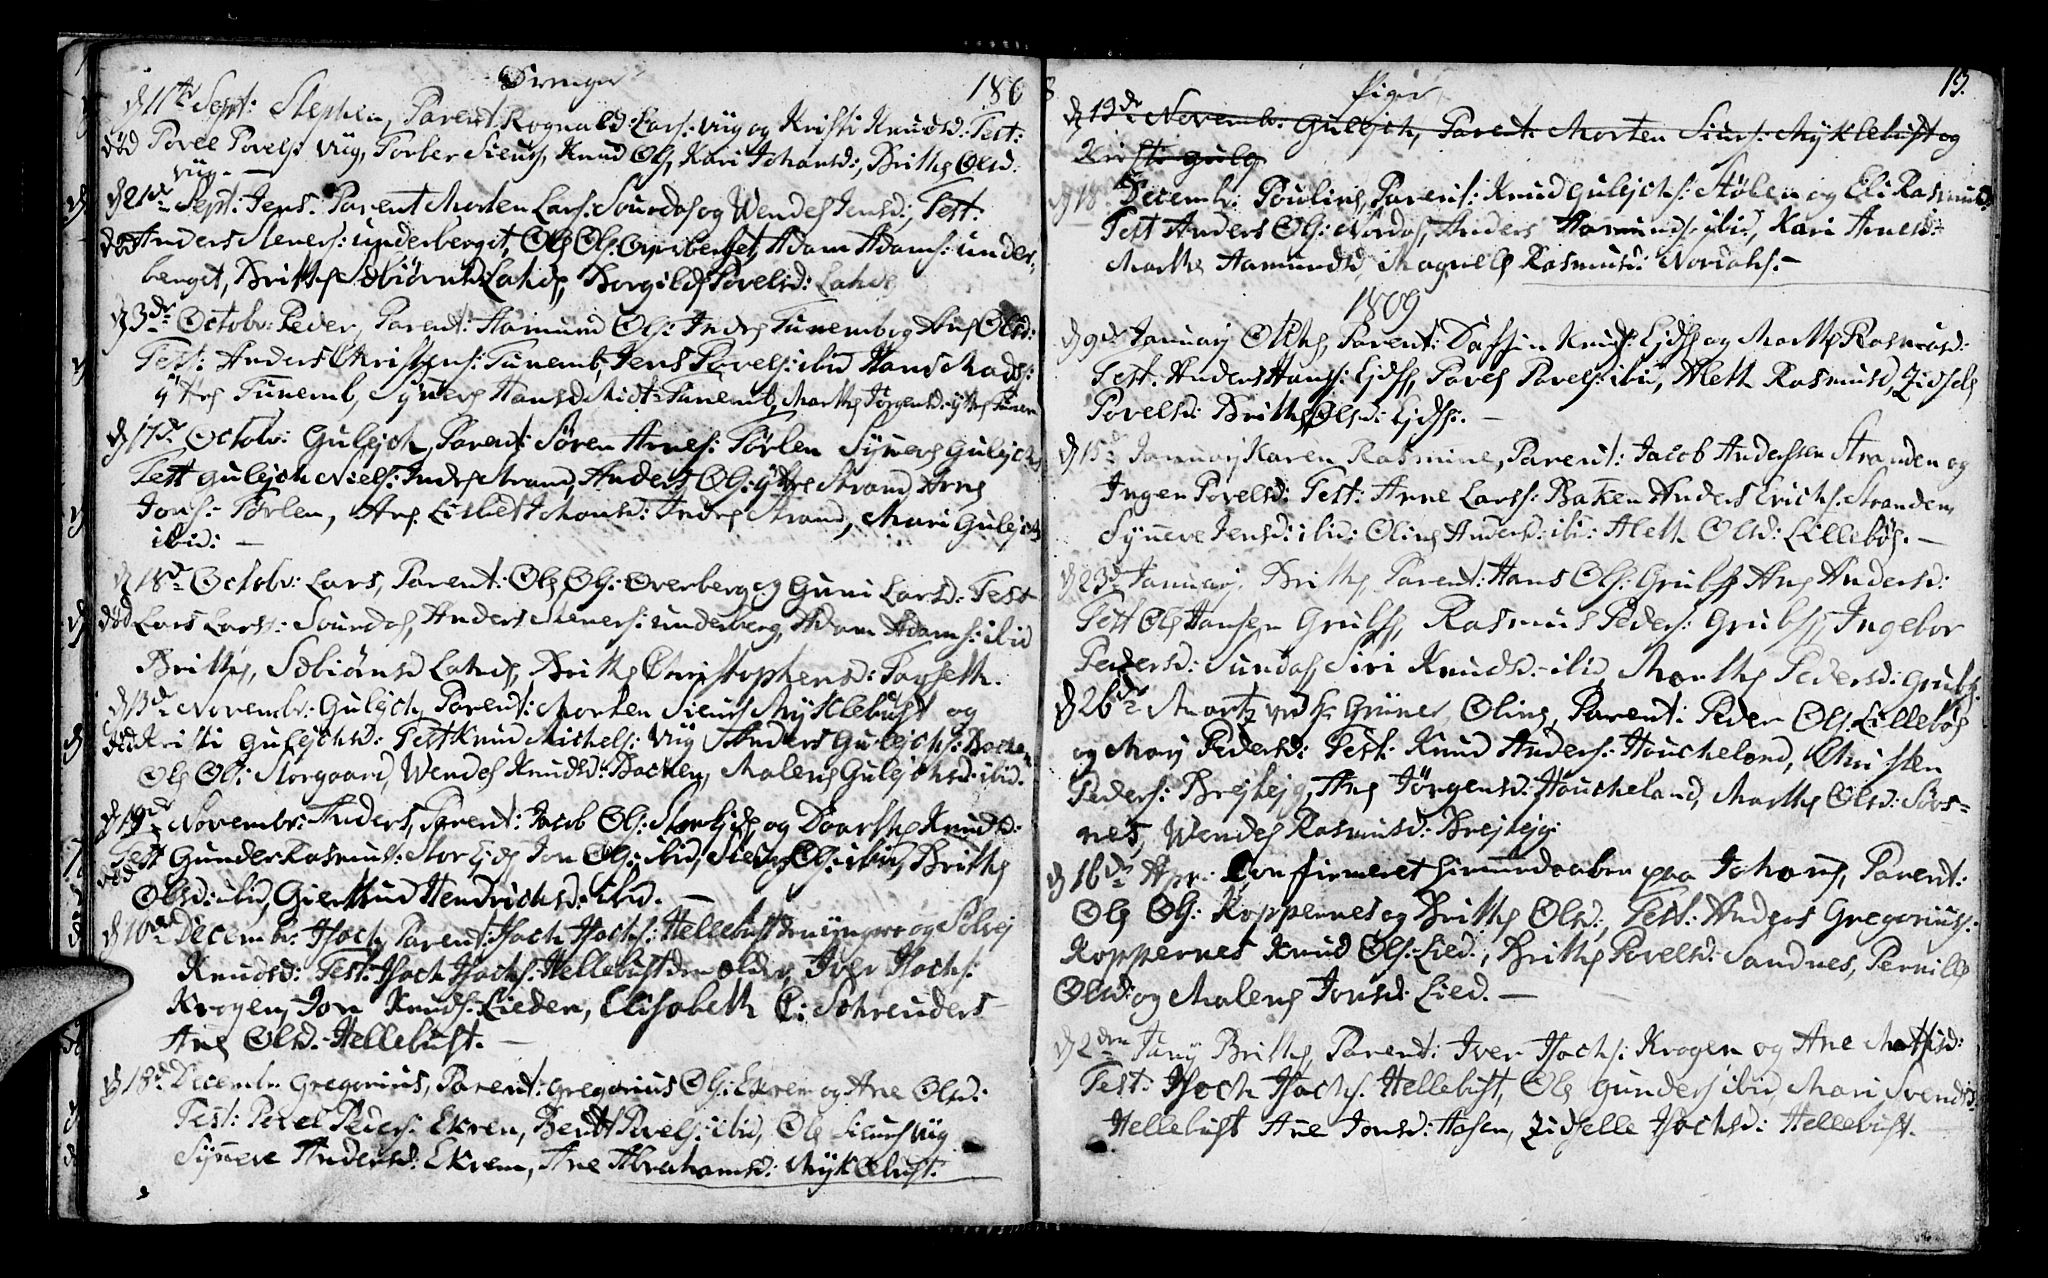 Drenger 180
d 11te Sept: Stephen, Parent Rognald Lars: Viig og Kristi Knudsd: Test:
død Povel Povels: Viig, Torber Siurs, Knud Ols, Kari Johansd:, Brithe Olsd:
Viig. —
d 21de Sept: Jens. Parent Morten Lars: Sourdal og Wendel Jensd:, Test.
død Anders Steners: underberget, Ole Ols: Overberget, Adam Adams: under-
berget, Brithe Sæbiørnsd: Lahde, Borgild Povelsd: Lahde
d 3de Octobr: Peder, Parent: Aamund Ols: Indre Tunemb og Ane Olsd:
Test: Anders Christens: Tunemb, Jens Povels: ibid Hans Mads:
ytre Tunemb, Synneve Hansd Midt-Tunemb, Marthe Jørgensd: ytre Tunem
d 17de Octobr: Guleich, Parent: Søren Arnes: Førlen Synneve Guleichs
Test Guleich Niels: Indre Strand, Anders Ols: ytre Strand, Arne
Jons:- Førlen, Ane Lisbet Monsd: Indre Strand, Mari Guleichs
ibid: —
d 18de Octobr: Lars, Parent: Ole Ols: Overberg og Guni Larsd: Test
død Lars Lars: Sourdal, Anders Steners: underberg, Adam Adams: ibid
Brithe, Sæbiørnsd Lahde, Brithe Christophersd: Tayseth.
d 13de Novembr: Guleich, Parent: Morten Siurs Myklebust og
død Kristi Guleichsd: Test Knud Michels: Viig Anders Guleichs: Backen
Ole Ols: Storgaard, Wendel Knudsd: Backen, Malene Guleichsd: ibid.
d 19de Novembr: Anders, Parent: Jacob Ols: Storeide og Doarthe Knudsd:
død Test Gunder Rasmus: Stor Eide Jon Ols: ibid, Siur Ols: ibid, Brithe
Olsd: ibid, Gierthrud Hendrichsd: ibid. —
d 10de Decembr: Isach, Parent: Isach Isachs: Hellebust den yngere og Sølvej
Knudsd: Test: Isach Isachs: Hellebust den ældre, Iver Isachs:
Krogen, Jon Knuds: Lieden, Elisabeth C: Schreuders
Ane Olsd. Hellebust. —
d 18de Decembr Gregorius, Parent: Gregorius Ols: Ekrem og Ane Olsd:
Test: Povel Peders: Ekren, Bendt Povels: ibid, Ole Siurs Viig
Synneve Andersd: Ekrem, Ane Abrahamsd: Myklebust.
8 Piger 15.
d 19de Novembr: Guleich, Parent: Morten Siurs: Myklebust og
Kristi Guleg
d 18. Decembr: Pouline, Parent: Knud Guleichs: Støben og Eli Rasmusd:
Test Anders Ols: Nordal, Anders Aamunds: ibid, Kari Arnesd:
Marthe Aamundsd, Magnele Rasmusd: Nordahl. —
1809
d 9de Januarj Olthe, Parent: Daffin Knuds: Eidse og Marthe Rasmusd:
Test: Anders Hans: Eidse, Povel Povels: ibid, Aleth Rasmusd, Zidsele
Povelsd: Brithe Olsd: Eidse. —
d 15de Januarj Karen Rasmine, Parent: Jacob Anderssen Stranden og
Ingen Povelsd: Test: Arne Lars: Bakken Anders Erichs: Stranden,
Synneve Jensd: ibid: Oline Andersd: ibid: Aleth Olsd: Lillebøe. —
d 23de Januarj. Brithe, Parent: Hans Ols: Grubse Ane Andersd:
Test Ole Hansen Grubse, Rasmus Peders: Grubse, Ingebor
Pedersd: Sundal, Siri Knudsd- ibid, Marthe Pedersd: Grubse.
d 26de Martz ved Hr Grüner Oline, Parent: Peder Ols: Lillebøe
og Mary Pedersd: Test: Knud Anders: Houcheland, Christen
Peders: Breiteig, Ane Jørgensd: Houcheland, Marthe Olsd: Sørs=
nes, Wendel Rasmusd: Breiteig.
d 16de Apr: Confirmeret hiemmedaaben paa Johane, Parent:
Ole Ols: Koppernes og Brithe Olsd:, Test: Anders Gregorius:
Koppernes Knud Ols: Lied, Brithe Povelsd: Sandnes, Pernille
Olsd: og Malene Jonsd: Lied. —
d 2den Junij Brithe, Parent: Iver Isachs: Krogen og Ane Mathisd:
Test: Isach Isachs: Hellebust, Ole Gunders: ibid, Mari Svendsd:
Hellebust Ane Jonsd: Hasen, Zidselle Isachsd: Hellebust. —